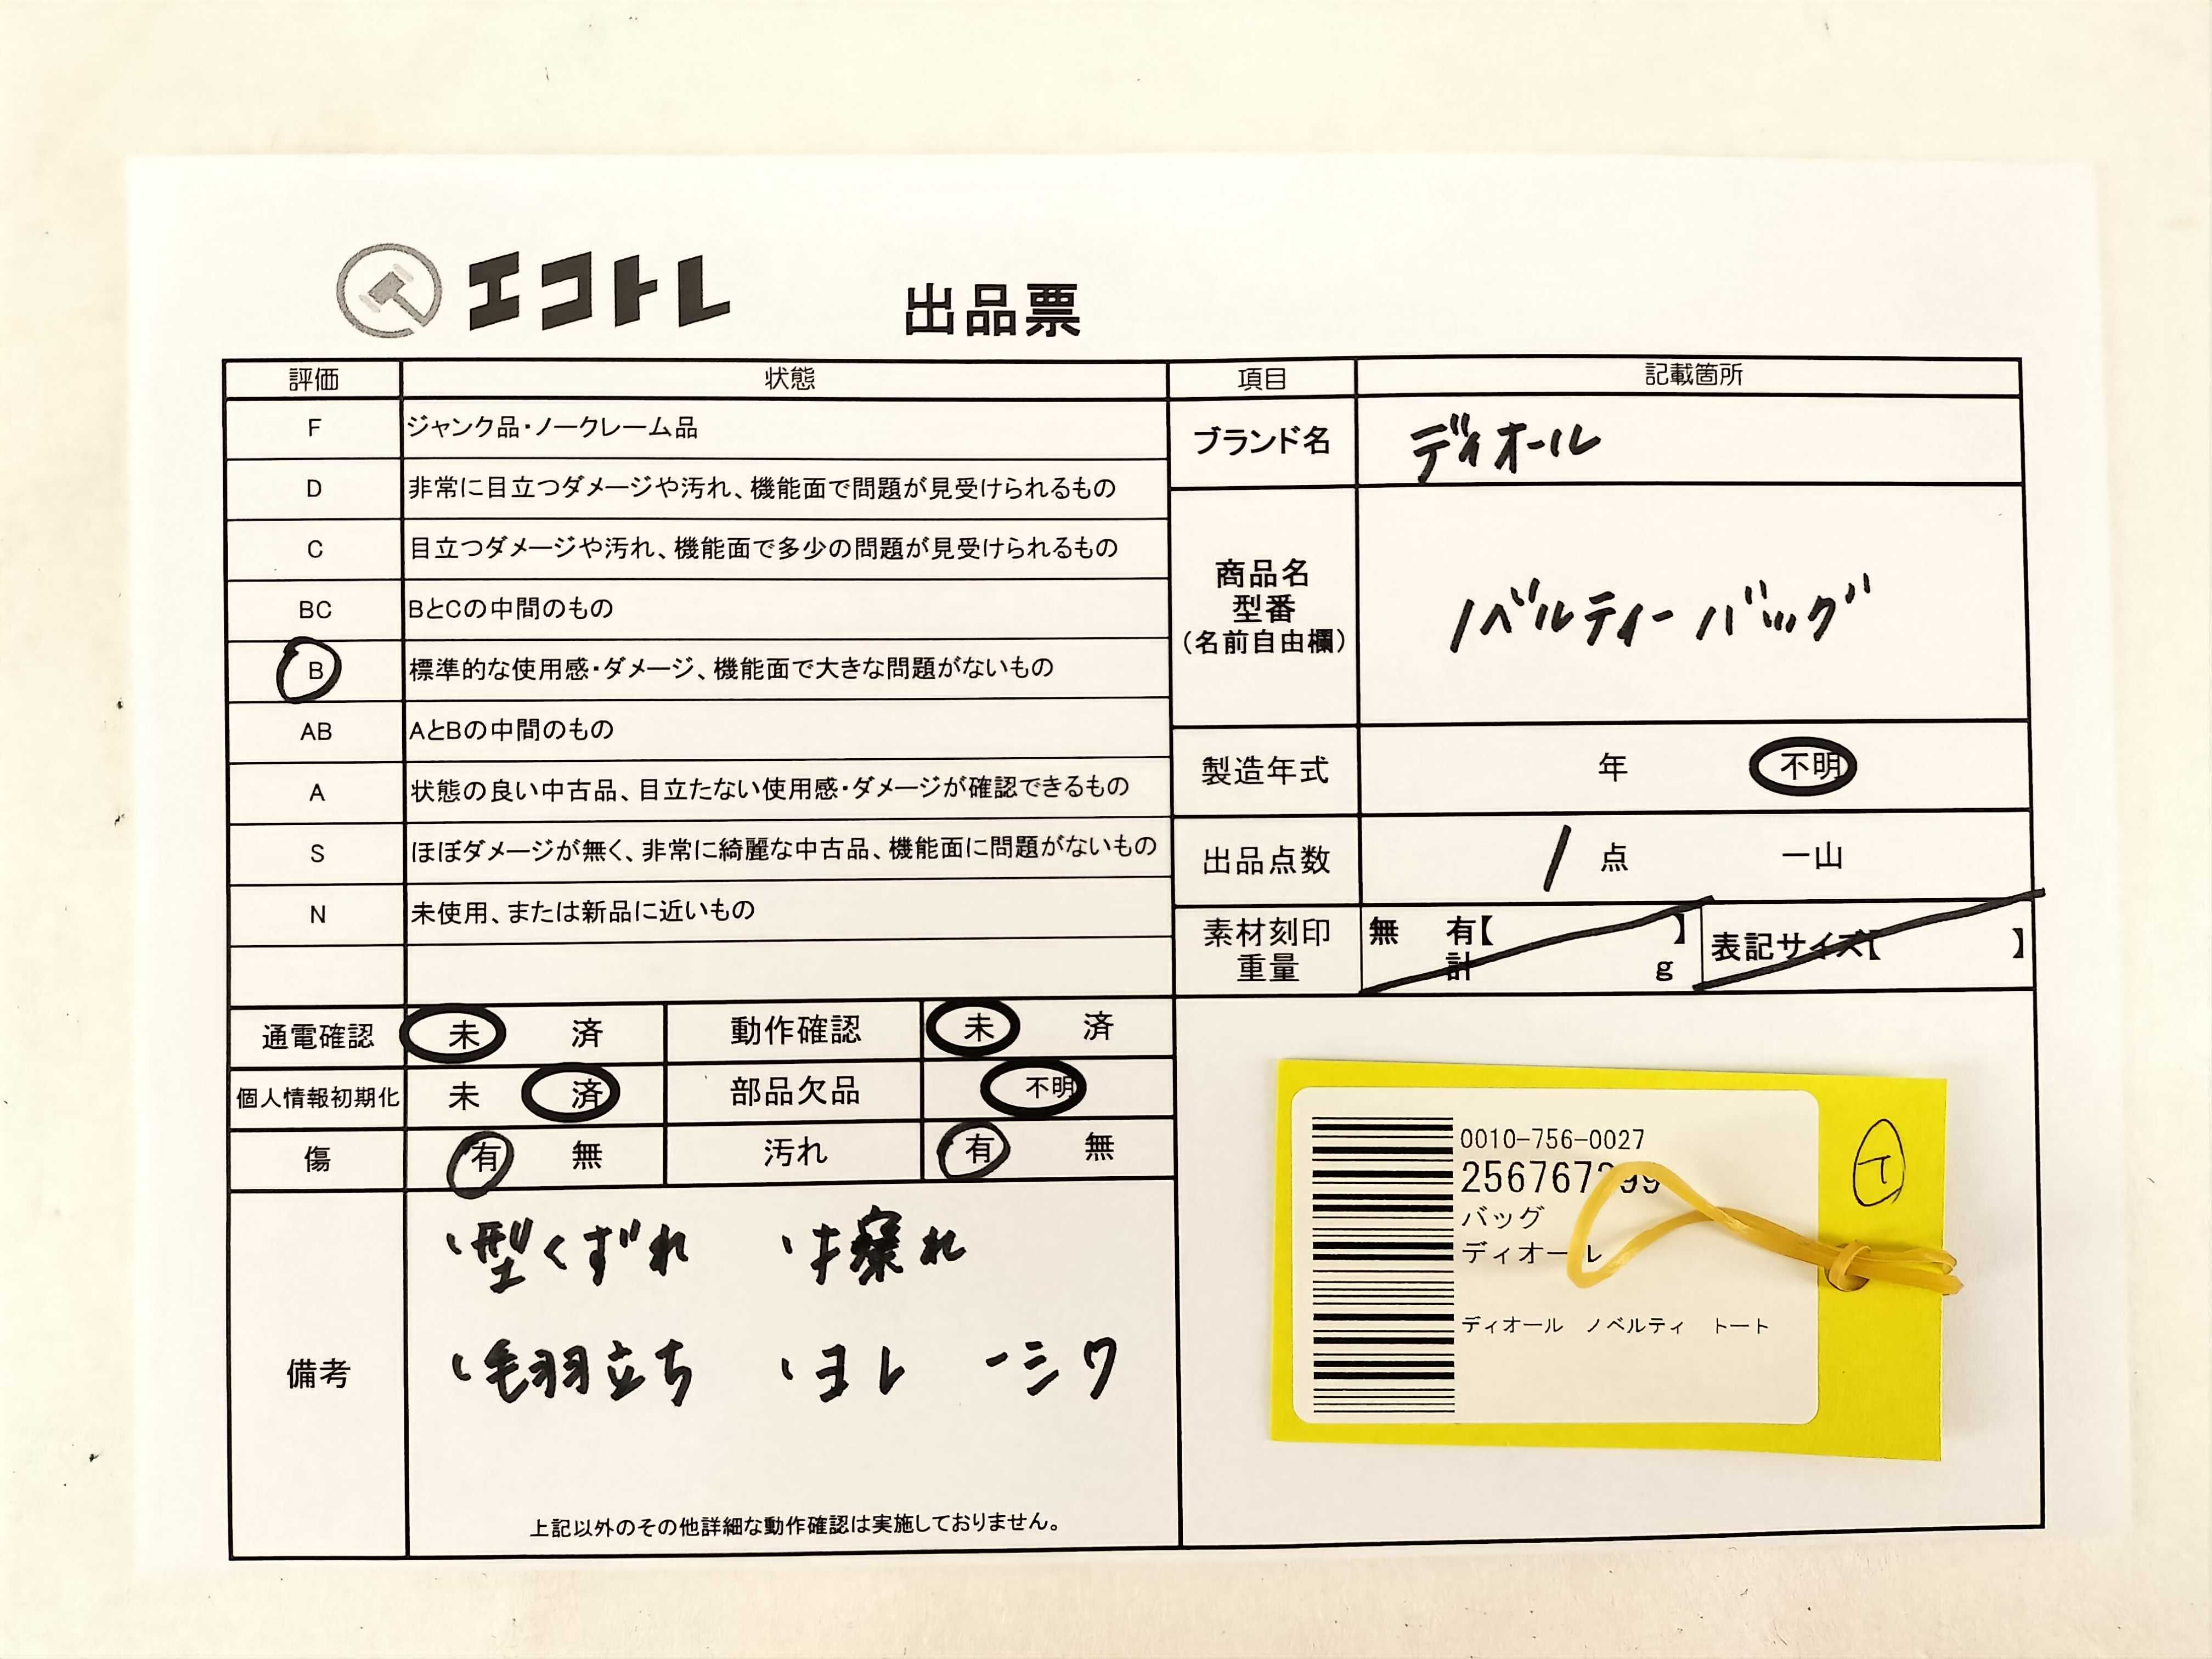 エコトレ 出品票
評価 状態 項目 記載箇所
F ジャンク品・ノークレーム品
D 非常に目立つダメージや汚れ、機能面で問題が見受けられるもの
C 目立つダメージや汚れ、機能面で多少の問題が見受けられるもの
BC BとCの中間のもの
B 標準的な使用感・ダメージ、機能面で大きな問題がないもの
AB AとBの中間のもの
A 状態の良い中古品、目立たない使用感・ダメージが確認できるもの
S ほぼダメージが無く、非常に綺麗な中古品、機能面に問題がないもの
N 未使用、または新品に近いもの
ブランド名 ディオール
商品名
型番
(名前自由欄)
ノベルティーバッグ
製造年式 年 不明
出品点数 1 点 一山
素材刻印 無 有【 】 表記サイズ【 】
重量 計 g
通電確認 未 済 動作確認 未 済
個人情報初期化 未 済 部品欠品 不明
傷 有 無 汚れ 有 無
備考
・型くずれ ・擦れ
・毛羽立ち ・ヨレ ・シワ
上記以外のその他詳細な動作確認は実施しておりません。
0010-756-0027
バッグ
ディオール
ディオール ノベルティ トート